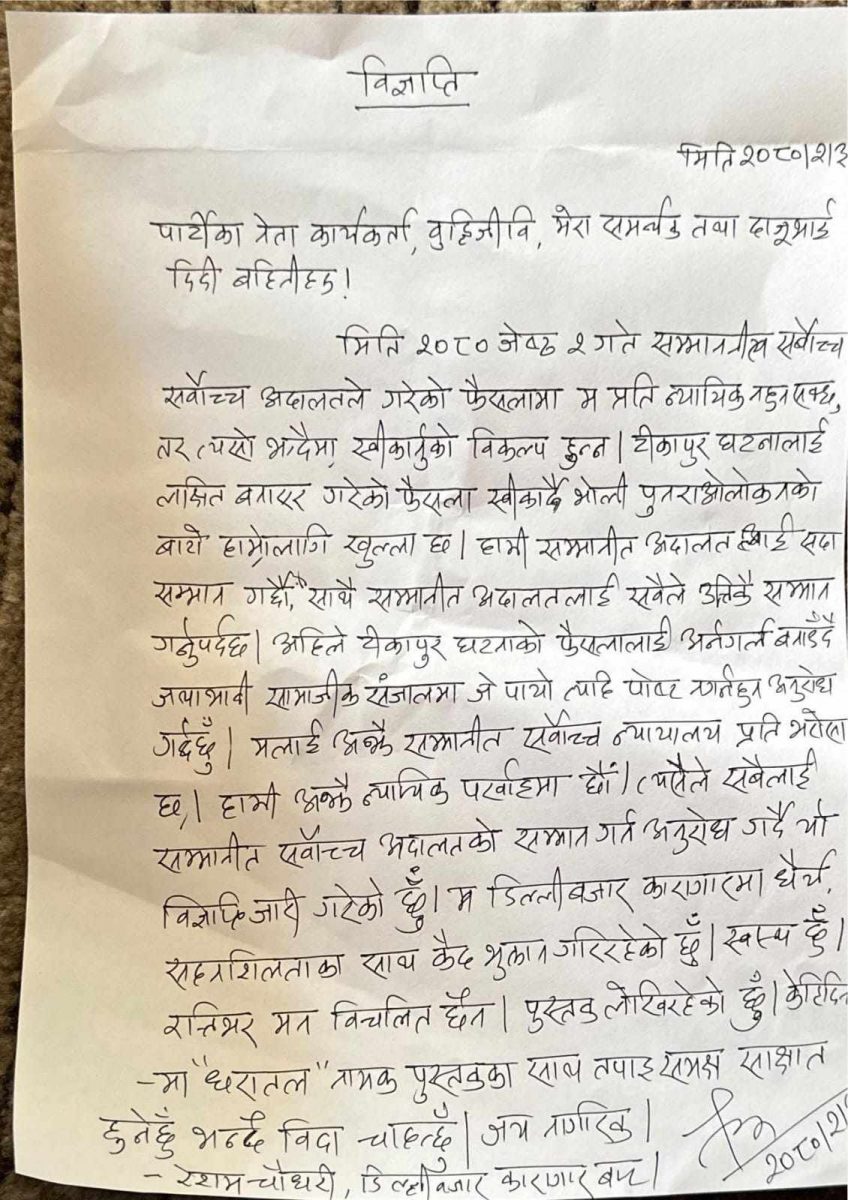 विज्ञप्ति
मिति २०८०/२/३
पार्टीका नेता कार्यकर्ता, वुद्धिजीवि, मेरा समर्थक तथा दाजूभाई
दिदी बहिनीहरु!
मिति २०८० जेष्ठ २ गते सम्माननीय सर्वोच्च
सर्वोच्च अदालतले गरेको फैसलामा म प्रति न्यायिक नहुनसक्छ,
तर त्यसो भन्दैमा स्वीकार्नुको विकल्प हुन्न। टीकापुर घटनालाई
लक्षित बनाएर गरेको फैसला स्वीकार्दै भोली पुनरावलोकनको
बाटो हाम्रोलागि खुल्ला छ। हामी सम्मानीत अदालत लाई सदा
सम्मान गर्दछौं, साथै सम्मानीत अदालतलाई सवैले उत्तिकै सम्मान
गर्नुपर्दछ। अहिले टीकापुर घटनाको फैसलालाई अर्नगर्ल बनाउँदै
जथाभावी सामाजीक संजालमा जे पायो त्यहि पोष्ट नगर्नहुन अनुरोध
गर्दछुँ। मलाई अझै सम्मानीत सर्वोच्च न्यायालय प्रति भरोसा
छ,। हामी अझै न्यायिक पर्खाइमा छौं। त्यसैले सबैलाई
सम्मानीत सर्वोच्च अदालतको सम्मान गर्न अनुरोध गर्दै यो
विज्ञप्ति जारी गरेको छुँ। म डिल्लीबजार कारागारमा धैर्य,
सहनशिलताका साथ कैद भुक्तान गरिरहेको छुँ। स्वस्थ छुँ।
रत्तिभर मन विचलित छैन। पुस्तक लेखिरहेको छुँ। केहिदिन
-मा "धरातल" नामक पुस्तकका साथ तपाइ समक्ष साक्षात
हुनेछुँ भन्दै विदा चाहन्छुँ। जय नागरिक।
- रेशम चौधरी, डिल्लीबजार कारागार बाट।
२०८०/२/३